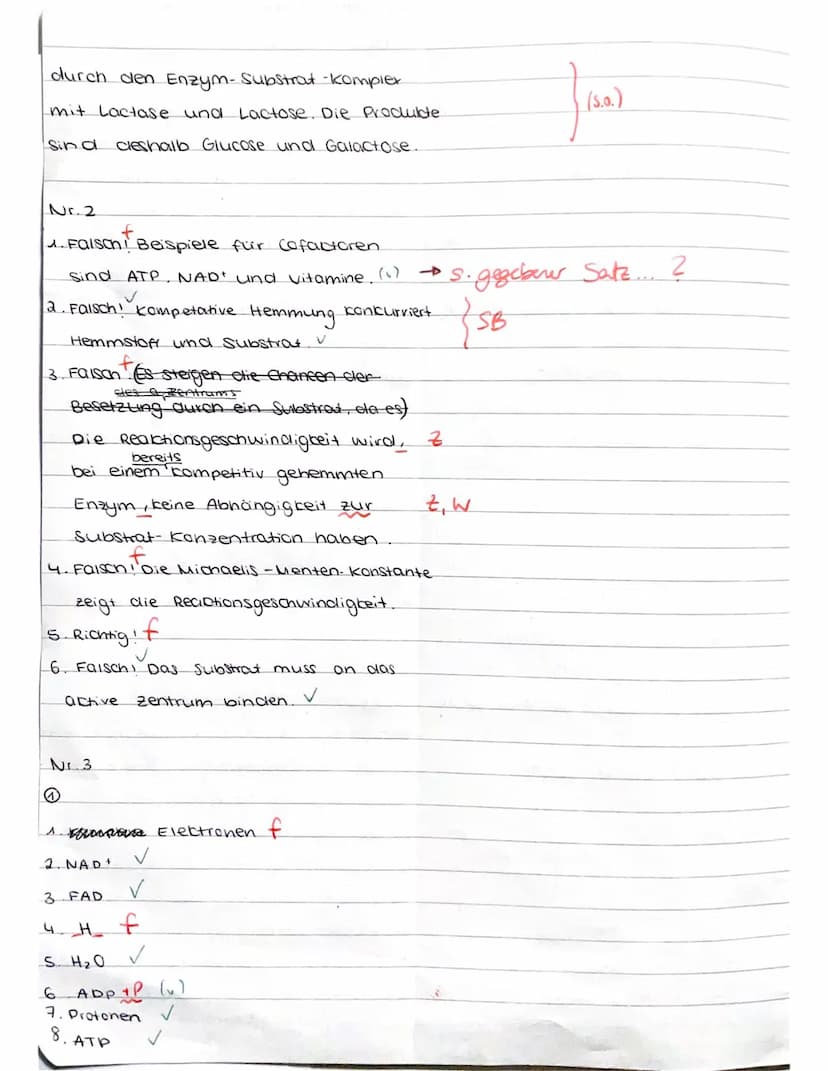 durch den Enzym-Substrat-Komplex
mit Lactase und Lactose. Die Produkte } (s.o.)
sind deshalb Glucose und Galactose.
Nr. 2
1. Falsch! f Beispiele für Cofactoren
sind ATP, NAD+ und Vitamine. (✓) → s. gegebener Satz... ?
2. Falsch! ✓ Kompetative Hemmung konkurriert } SB
Hemmstoff und Substrat. ✓
3. Falsch! f (Es steigen die Chancen der
des a. Zentrums
Besetzung durch ein Substrat, da es)
Die Reaktionsgeschwindigkeit wird, Z
bereits
bei einem kompetitiv gehemmten
Enzym, keine Abhängigkeit zur Z, W
Substrat-Konzentration haben.
4. Falsch! f Die Michaelis-Menten-Konstante
zeigt die Reactionsgeschwindigkeit.
5. Richtig! f
6. Falsch! ✓ Das Substrat muss an das
active Zentrum binden. ✓
Nr. 3
①
1. Elektronen f
2. NAD+ ✓
3. FAD ✓
4. H f
5. H₂O ✓
6. ADP+P (✓)
7. Protonen ✓
8. ATP ✓